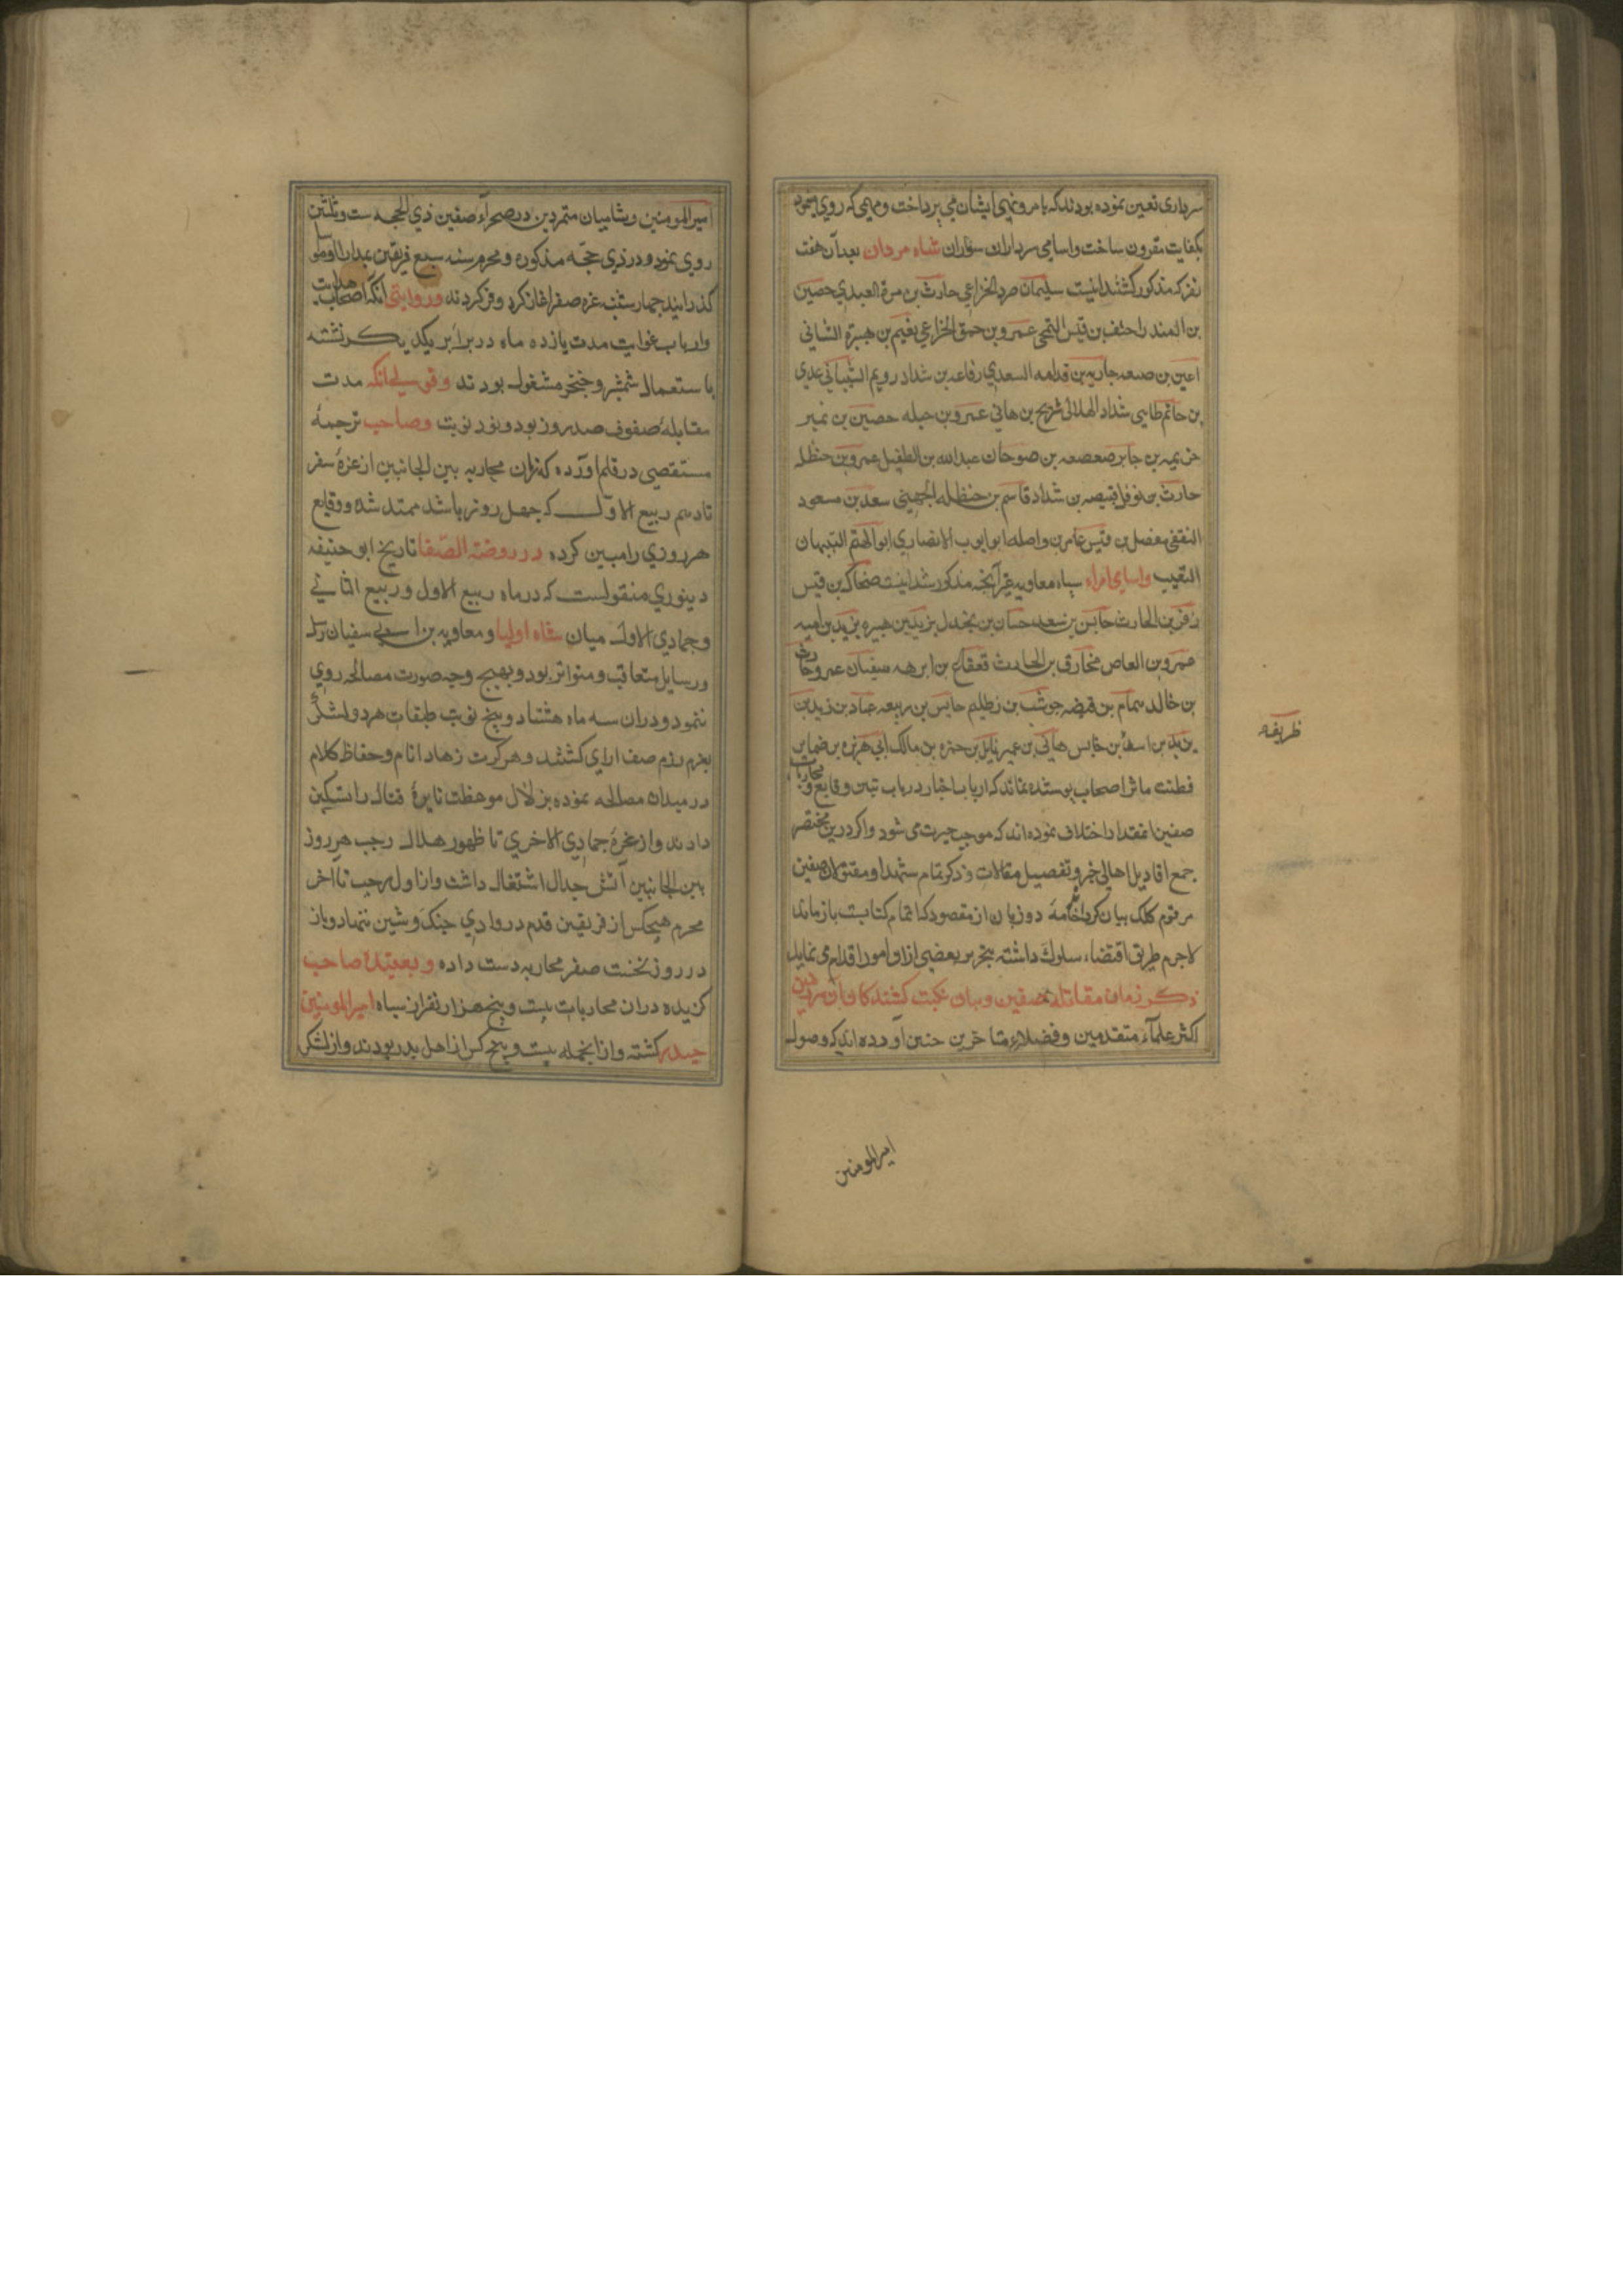 سرداری تعین نموده بودند که بامر و نهی ایشان می پرداخت و مهمی که روی مینمود
بکفایت مقرون ساخت و اسامی سرداران سواران شاه مردان بعد آن هفت
نفر که مذکور کشتند اینست سلیمان صرد الخزاعی حارث بن مرة العبدی حصین
بن المنذر احنف بن قیس التمیمی عمرو بن حمق الخزاعی نعیم بن هبیرة الشبانی
اعین بن صبعه جاریه بن قدامه السعدی رفاعه بن شداد رویم الشیبانی عدی
بن حاتم طایی شداد الهلالی شریح بن هانی عمرو بن جبله حصین بن نمیر
خزیمه بن جابر صعصعه بن صوحان عبدالله بن الطفیل عمرو بن حنظله
حارث بن نوفل قبیصه بن شداد قاسم بن حنظله الجهینی سعد بن مسعود
الثقفی فضل بن قیس عامر بن واصله ابو ایوب الانصاری ابو الهیثم التیهان
النقیب واسامی امراء سپاه معاویه غیر آنچه مذکور شد اینست ضحاک بن قیس
زفر بن الحارث حابس بن سعد حسان بن بجدل یزید بن هبیره یزید بن امیه
عمرو بن العاص مخارق بن الحارث قعقاع بن ابرهه سفیان عمرو حارث
بن خالد همام بن قبیضه حوشب بن ظلیم حابس بن ربیعه عباد بن زید بن
یزید بن اسد بن حابس هانی بن عمیر نایل بن حمزه بن مالک ابی هریره بر ضمایر
ظریفه
فطنت ماثر اصحاب پوشیده نماند که ارباب اخبار در باب تبین وقایع و محاربات
صفین انمقدار اختلاف نموده اند که موجب حیرت می شود و اکر درین مختصر
جمع اقاویل اهالی خبر و تفصیل مقالات و ذکر تمام شهدا و مقتولان صفین
مرقوم کلک بیان کردد خامه دو زبان از مقصود که اتمام کتابست باز ماند
لاجرم طریق اقتضاء سلوک داشته بتحریر بعضی ازان امور اقدام می نماید
ذکر زمان مقاتله صفین و بیان نکبت کشتکان آن سرزمین
اکثر علماء متقدمین و فضلاء متاخرین چنین آورده اند که وصول
امیرالمومنین
امیر المومنین و شامیان متمردین در صحرآء صفین ذی الحجه ست و ثلثین
روی نمود و در ذی حجّه مذکوره و محرم سنه سبع فریقین بمدار او مواسا
کذرانیدند چهارشنبه غره صفر اغاز کرد و فر کردند و روایتی آنکه اصحاب هدایت
و ارباب غوایت مدت یازده ماه در برابر یکدیکر نشسته
باستعمال شمشیر و خنجر مشغول بودند و قولی آنکه مدت
مقابلهٔ صفوف صد روز بود و نود نوبت و صاحب ترجمهٔ
مستقصی در قلم آورده که زمان محاربه بین الجانبین از غزهٔ سفر
تا دهم ربیع الاول که چهل روز باشد ممتد شد و وقایع
هر روزی را مبین کرده در روضة الصّفا تاریخ ابو حنیفه
دینوری منقولست که در ماه ربیع الاول و ربیع الثانی
و جمادی الاول میان شاه اولیا و معاویه بن ابی سفیان رسل
و رسایل متعاقب و متواتر بود و بهیچ وجه صورت مصالحه روی
ننمود و دران سه ماه هشتاد و پنج نوبت طبقات هر دو لشکر
بعزم رزم صف ارای کشتند و هر کرت زهاد انام و حفاظ کلام
در میدان مصالحه نموده بزلال موعظت نایرهٔ قتال را تسکین
دادند و از غرهٔ جمادی الاخری تا ظهور هلال رجب هر روز
بین الجانبین آتش جدال اشتغال داشت و از اول رجب تا اخر
محرم هیچکس از فریقین قدم در وادی جنک و شین ننهاد و باز
در روز نخست صفر محاربه دست داده و بعقیدهٔ صاحب
کزیده دران محاربات بیست و پنج هزار نفر از سپاه امیر المومنین
حیدر کشته و ازانجمله بیست و پنج کس از اهل بدر بودند و از لشکر